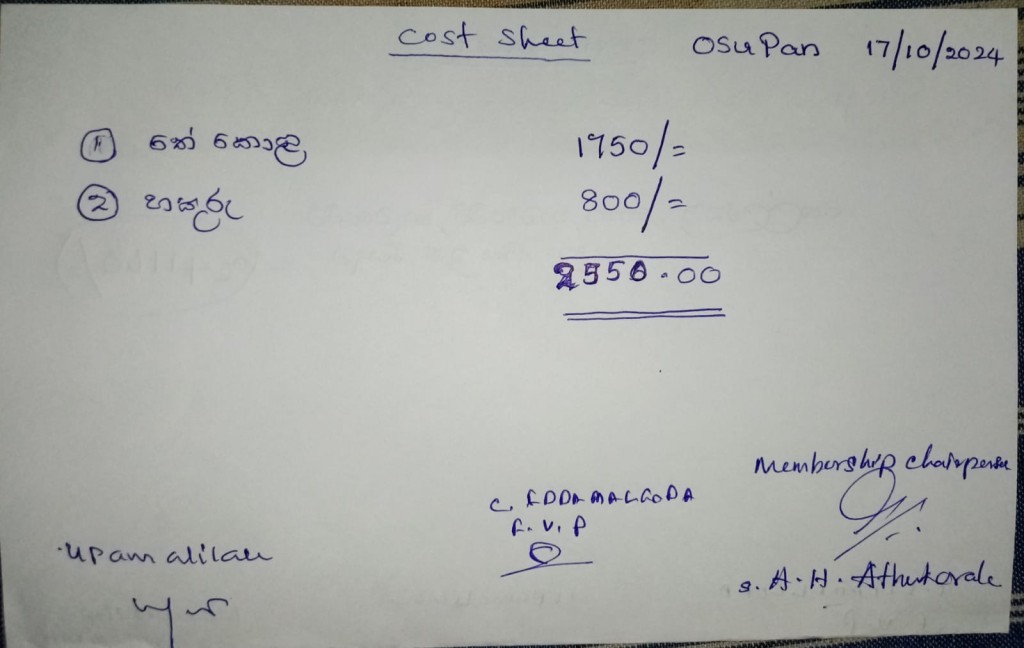 Cost Sheet OSU Pan 17/10/2024
① තේ කොළ 1750/=
② හකුරු 800/=
2550.00
Membership Chairperson
C. EDDAMALGODA
F. V. P
Upamalilau
S. A. H. Athukorale